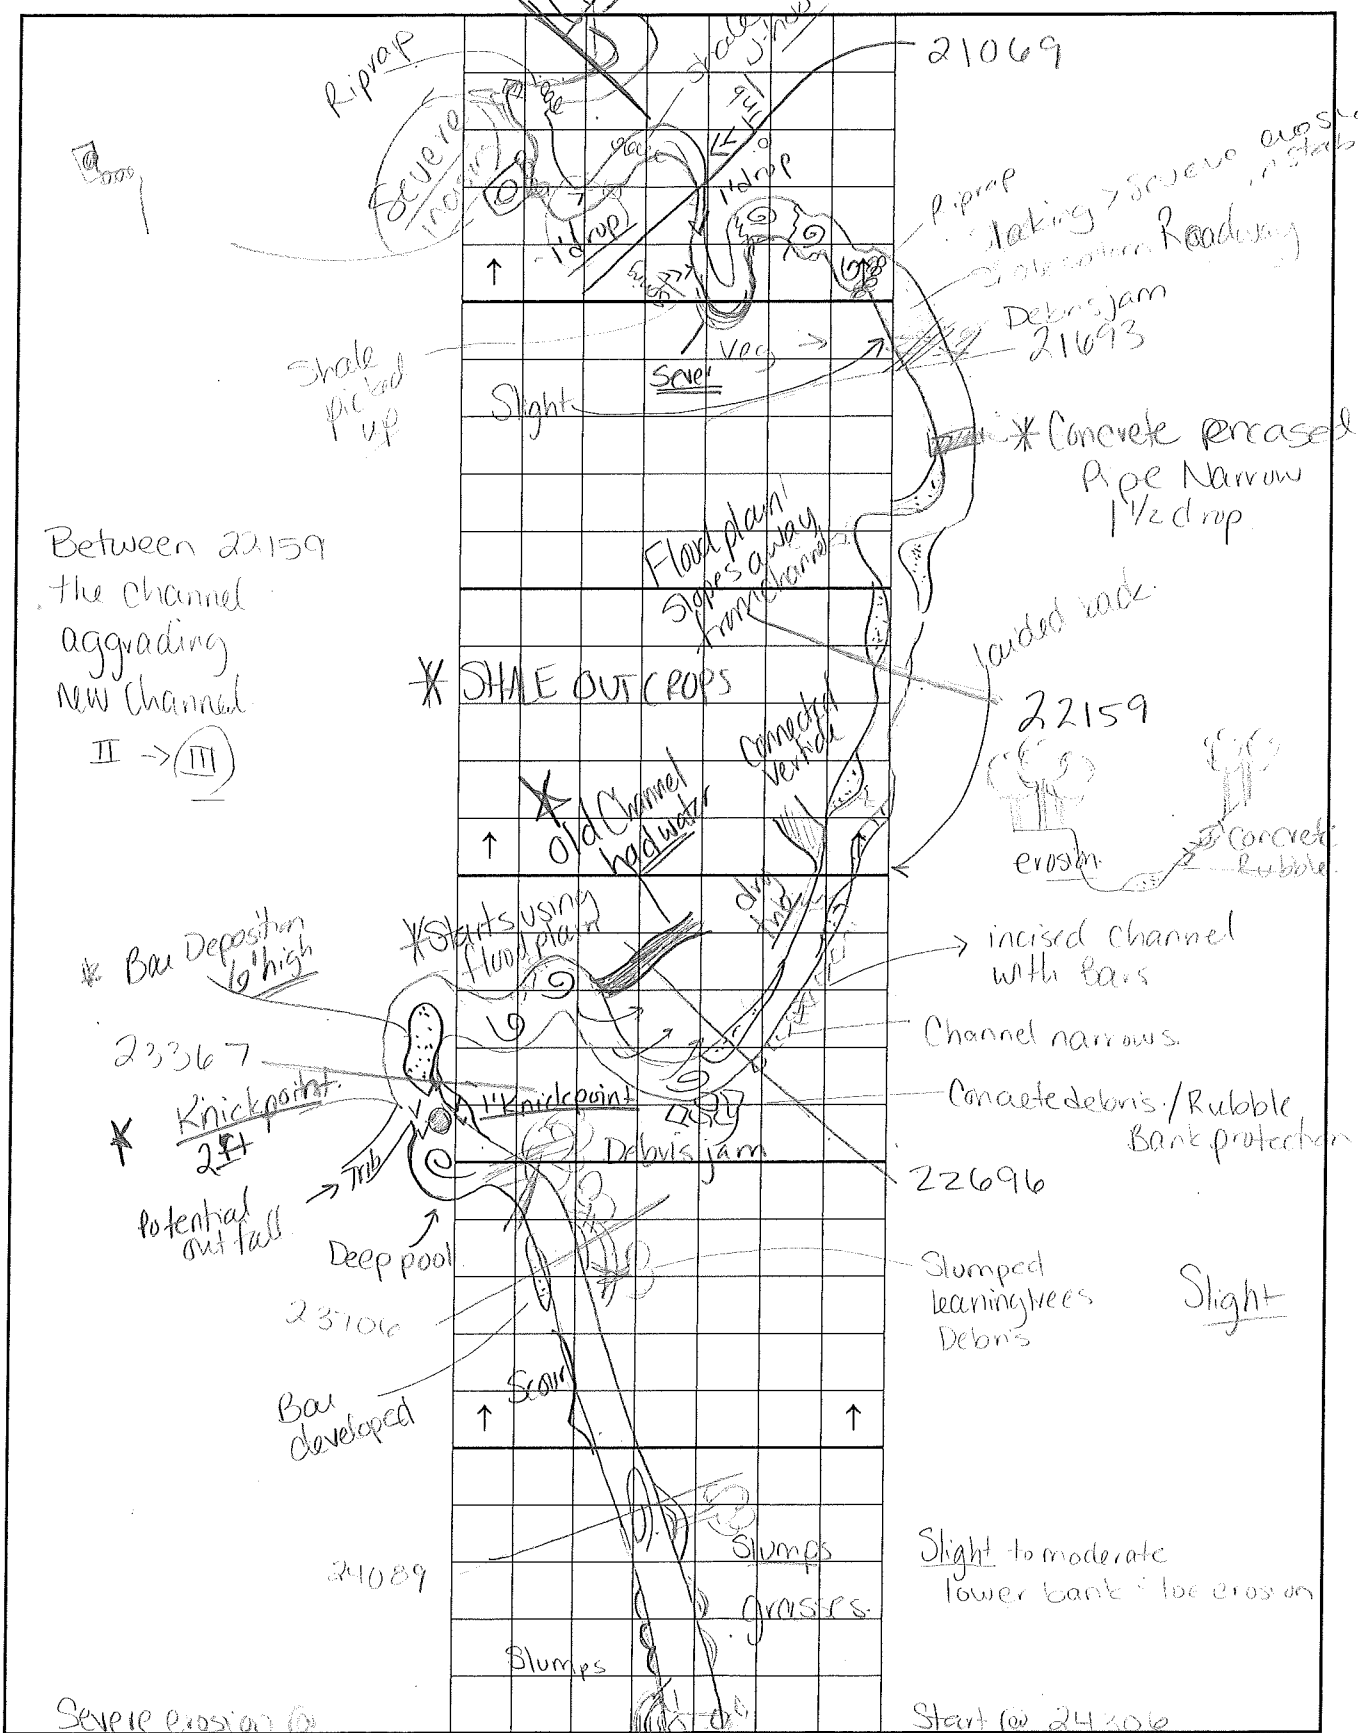 21069
Riprap
Shale
Severe
1' drop
1' drop
Riprap
Roadway
Debris jam
21693
Shale
picked
up
Veg
Sever
Slight
Concrete encased
Pipe Narrow
1 1/2 drop
Floodplain
slopes away
from channel
Between 22159
the channel
aggrading
new channel
II → III
SHALE OUTCROPS
22159
Connected
vertide
Old Channel
had water
erosion
Concrete
Rubble
dry
Starts using
floodplain
Bar Deposition
6' high
incised channel
with Bars
Channel narrows.
23367
Knickpoint.
2 ft
1' Knickpoint
Concrete debris / Rubble
Bank protection
Debris jam
Trib
22696
Potential
outfall
Deep pool
Slumped
leaning trees
Debris
Slight
23706
Scour
Bar
developed
24089
Slumps
grasses.
Slight to moderate
lower bank toe erosion
Slumps
Severe erosion @
Start @ 24306